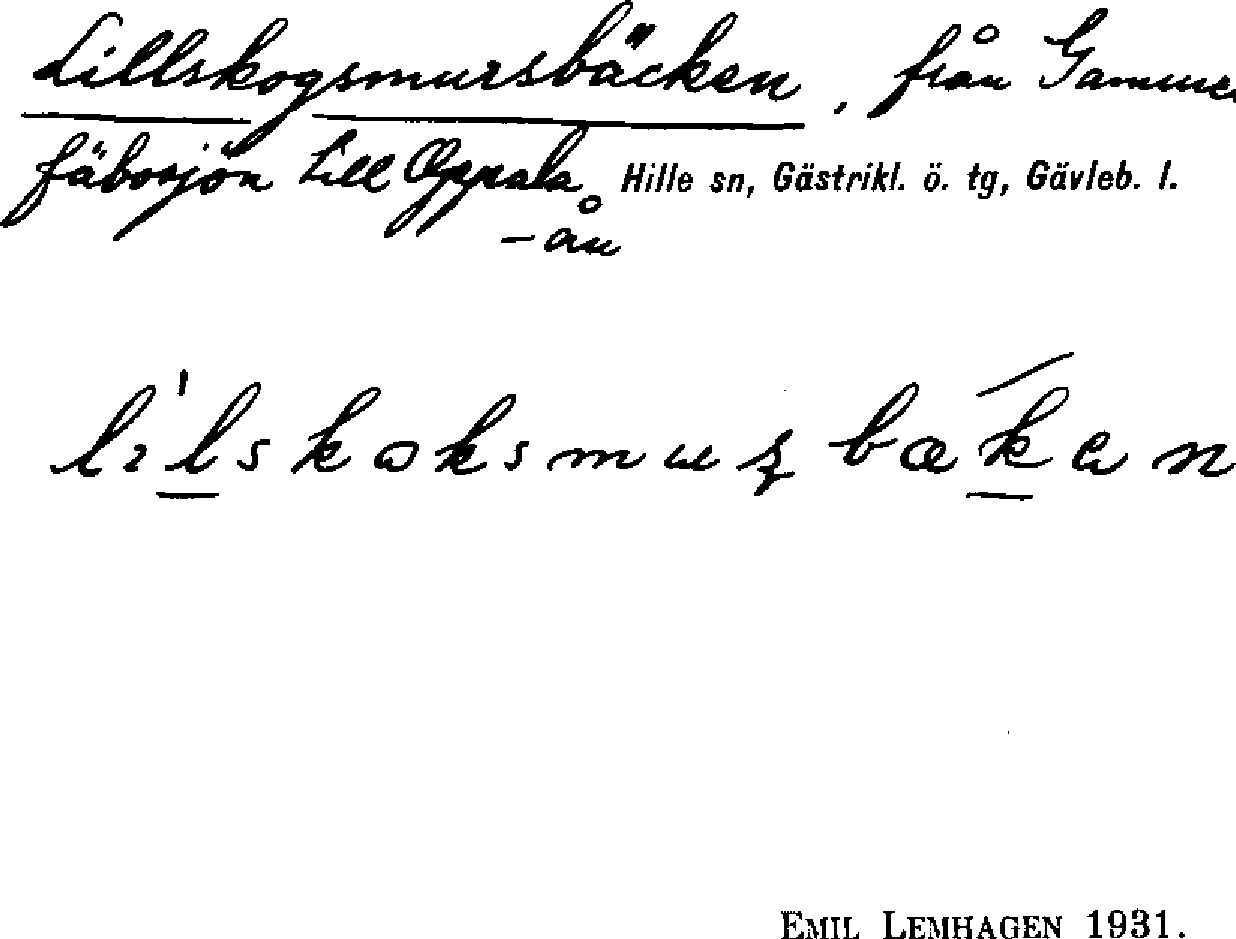 Lillskogsmursbäcken, från Gammel
fäbosjön till Oppala Hille sn, Gästrikl. ö. tg, Gävleb. l.
– ån
EMIL LEMHAGEN 1931.